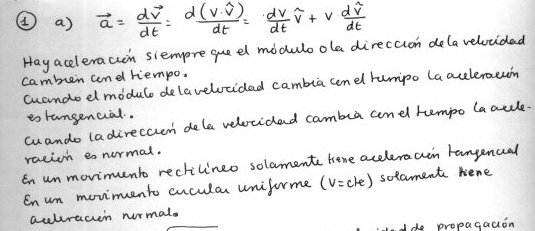 ① a) a⃗ = dv⃗/dt = d(v·v̂)/dt = dv/dt v̂ + v dv̂/dt
Hay aceleración siempre que el módulo o la dirección de la velocidad
cambian con el tiempo.
Cuando el módulo de la velocidad cambia con el tiempo la aceleración
es tangencial.
Cuando la dirección de la velocidad cambia con el tiempo la acele-
ración es normal.
En un movimiento rectilíneo solamente tiene aceleración tangencial
En un movimiento circular uniforme (v=cte) solamente tiene
aceleración normal.
de propagación